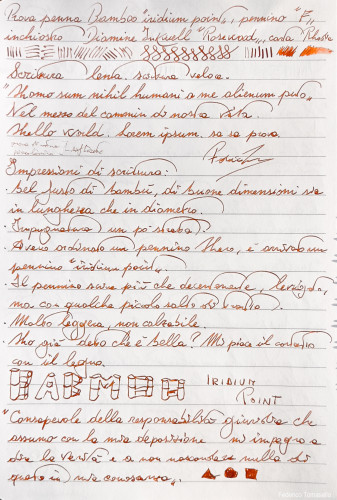 Prova penna Bamboo "iridium point", pennino "F",
inchiostro Diamine Inkwell "Rosewood", carta Rhodia
Scrittura lenta, scrittura veloce.
"Homo sum nihil humani a me alienum puto"
Nel mezzo del cammin di nostra vita.
Hello world. Lorem ipsum. sa sa prova
Impressioni di scrittura:
. Bel fusto di bambù, di buone dimensioni sia
in lunghezza che in diametro.
. Impugnatura un po' strana.
. Avevo ordinato un pennino Hero, è arrivato un
pennino "iridium point".
. Il pennino scrive più che decentemente,
ma con qualche piccolo salto di tratto.
. Molto leggera, non calzabile.
. Ho già detto che è bella? Mi piace il contatto
con il legno.
IRIDIUM
POINT
"Consapevole della responsabilità giuridica che
assumo con la mia deposizione mi impegno a
dire la verità e a non nascondere nulla di
quanto in mia conoscenza".